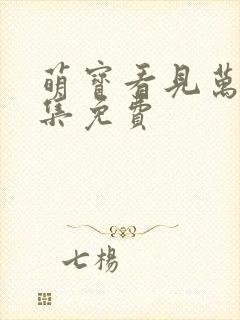 萌寶看見萬
集免費
七楊